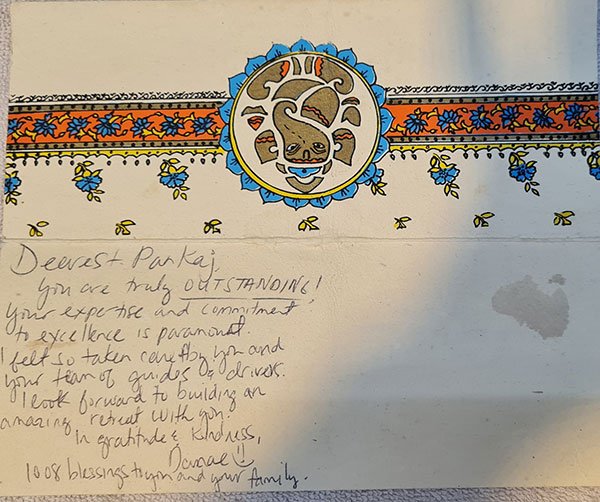 Dearest Pankaj,
You are truly OUTSTANDING!
Your expertise and commitment
to excellence is paramount.
I felt so taken care of by you and
your team of guides & drivers.
I look forward to building an
amazing retreat with you.
In gratitude & kindness,
Danae
1008 blessings to you and your family.